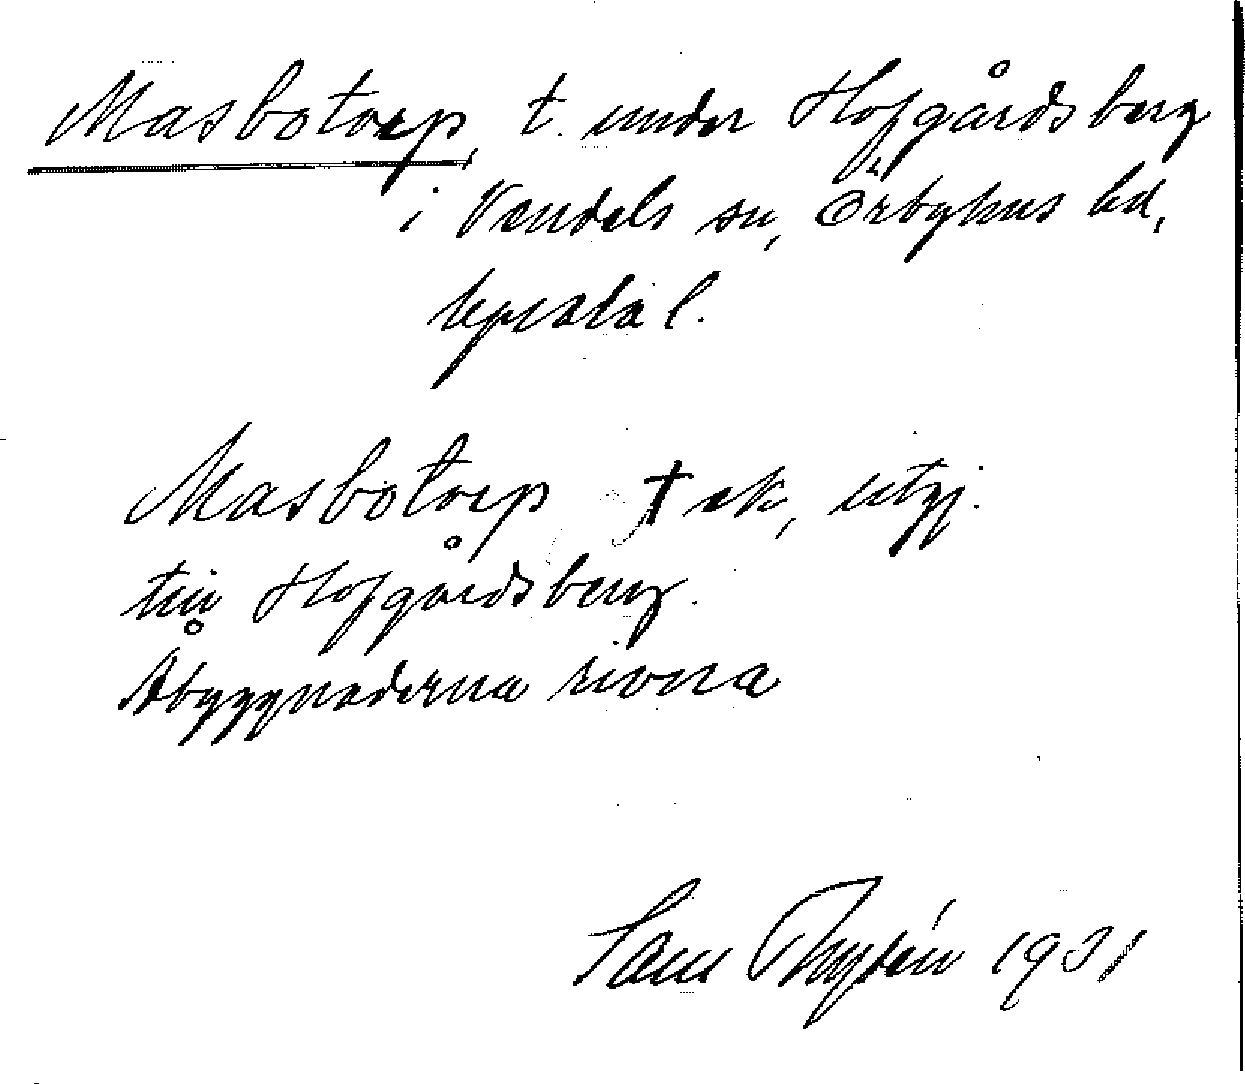 Masbotorp, t. under Hofgårdsberg
i Vendels sn, Örbyhus hd,
Upsala l.
Masbotorp † sk, utgj.
till Hofgårdsberg.
Åbyggnaderna rivna
Sam 1931